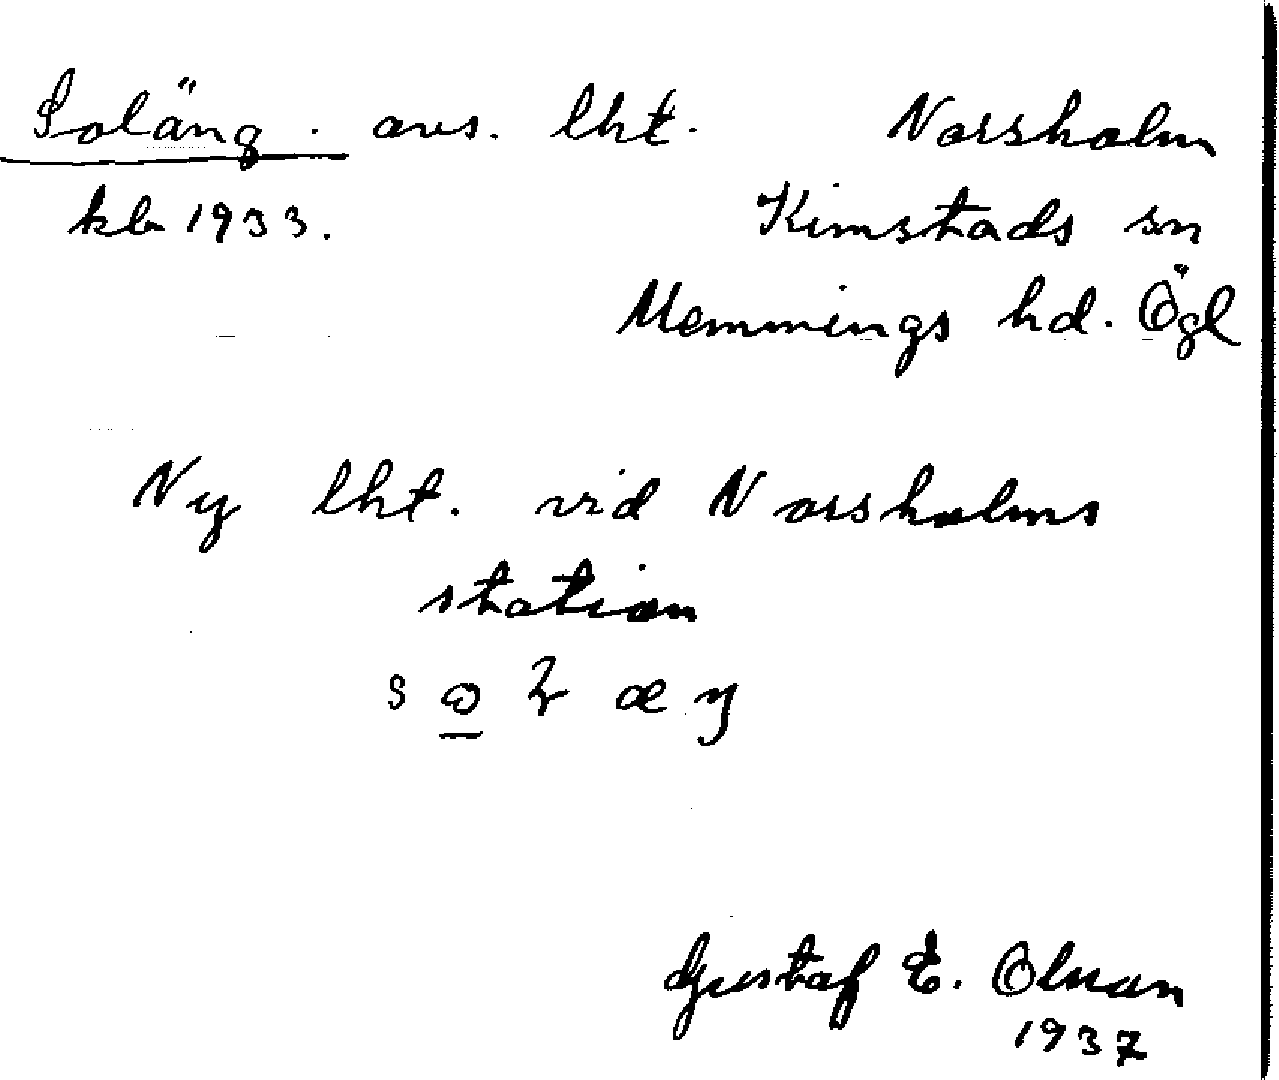 Soläng. avs. lht. Norsholm
kb 1933. Kimstads sn
Memmings hd. Ögl
Ny lht. vid Norsholms
station
Gustaf E. Olsson
1937